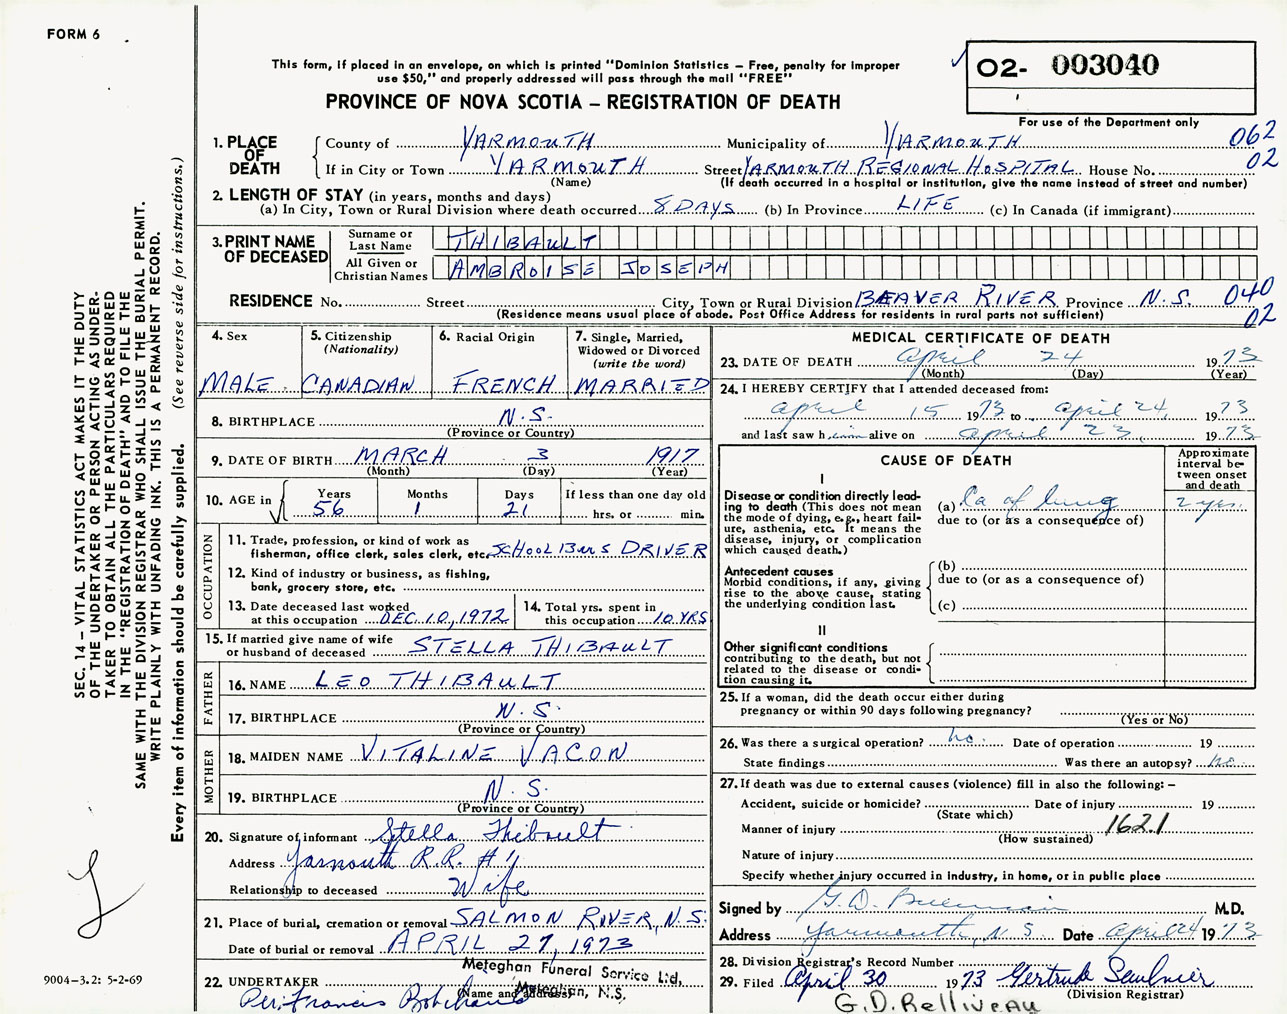 FORM 6
This form, if placed in an envelope, on which is printed "Dominion Statistics – Free, penalty for improper
use $50," and properly addressed will pass through the mail "FREE"
PROVINCE OF NOVA SCOTIA – REGISTRATION OF DEATH
02- 003040
For use of the Department only
1. PLACE OF DEATH
County of YARMOUTH Municipality of YARMOUTH 062
If in City or Town YARMOUTH Street YARMOUTH REGIONAL HOSPITAL House No. 02
(Name) (If death occurred in a hospital or institution, give the name instead of street and number)
2. LENGTH OF STAY (in years, months and days)
(a) In City, Town or Rural Division where death occurred 8 DAYS (b) In Province LIFE (c) In Canada (if immigrant)
3. PRINT NAME OF DECEASED
Surname or Last Name THIBAULT
All Given or Christian Names AMBROISE JOSEPH
RESIDENCE No. Street City, Town or Rural Division BEAVER RIVER Province N.S. 040
(Residence means usual place of abode. Post Office Address for residents in rural parts not sufficient) 02
4. Sex MALE
5. Citizenship (Nationality) CANADIAN
6. Racial Origin FRENCH
7. Single, Married, Widowed or Divorced (write the word) MARRIED
8. BIRTHPLACE N.S.
(Province or Country)
9. DATE OF BIRTH MARCH 3 1917
(Month) (Day) (Year)
10. AGE in Years 56 Months 1 Days 21 If less than one day old hrs. or min.
OCCUPATION
11. Trade, profession, or kind of work as
fisherman, office clerk, sales clerk, etc. SCHOOL BUS DRIVER
12. Kind of industry or business, as fishing,
bank, grocery store, etc.
13. Date deceased last worked
at this occupation DEC. 10, 1972
14. Total yrs. spent in
this occupation 10 YRS
15. If married give name of wife
or husband of deceased STELLA THIBAULT
FATHER
16. NAME LEO THIBAULT
17. BIRTHPLACE N.S.
(Province or Country)
MOTHER
18. MAIDEN NAME VITALINE VACON
19. BIRTHPLACE N.S.
(Province or Country)
20. Signature of informant Stella Thibault
Address Yarmouth R.R. #1
Relationship to deceased Wife
21. Place of burial, cremation or removal SALMON RIVER, N.S.
Date of burial or removal APRIL 27, 1973
22. UNDERTAKER Meteghan Funeral Service Ltd,
(Name and address) Meteghan, N.S.
Per: Francis
MEDICAL CERTIFICATE OF DEATH
23. DATE OF DEATH April 24 1973
(Month) (Day) (Year)
24. I HEREBY CERTIFY that I attended deceased from:
April 15 1973 to April 24, 1973
and last saw him alive on April 23, 1973
CAUSE OF DEATH
Approximate interval between onset and death
I
Disease or condition directly lead-
ing to death (This does not mean
the mode of dying, e.g., heart fail-
ure, asthenia, etc. It means the
disease, injury, or complication
which caused death.)
(a) Ca of lung 2 yrs.
due to (or as a consequence of)
Antecedent causes
Morbid conditions, if any, giving
rise to the above cause, stating
the underlying condition last.
(b)
due to (or as a consequence of)
(c)
II
Other significant conditions
contributing to the death, but not
related to the disease or condi-
tion causing it.
25. If a woman, did the death occur either during
pregnancy or within 90 days following pregnancy?
(Yes or No)
26. Was there a surgical operation? no. Date of operation 19
State findings Was there an autopsy? no.
27. If death was due to external causes (violence) fill in also the following: –
Accident, suicide or homicide? Date of injury 19
(State which)
Manner of injury 1621
(How sustained)
Nature of injury
Specify whether injury occurred in industry, in home, or in public place
Signed by G.D. Belliveau M.D.
Address Yarmouth, N.S. Date April 24 1973
28. Division Registrar's Record Number
29. Filed April 30 1973 Gertrude Saulnier
(Division Registrar)
G.D. Belliveau
SEC. 14 – VITAL STATISTICS ACT MAKES IT THE DUTY
OF THE UNDERTAKER OR PERSON ACTING AS UNDER-
TAKER TO OBTAIN ALL THE PARTICULARS REQUIRED
IN THE "REGISTRATION OF DEATH" AND TO FILE THE
SAME WITH THE DIVISION REGISTRAR WHO SHALL ISSUE THE BURIAL PERMIT.
WRITE PLAINLY WITH UNFADING INK. THIS IS A PERMANENT RECORD.
Every item of information should be carefully supplied. (See reverse side for instructions.)
9004–3.2: 5-2-69